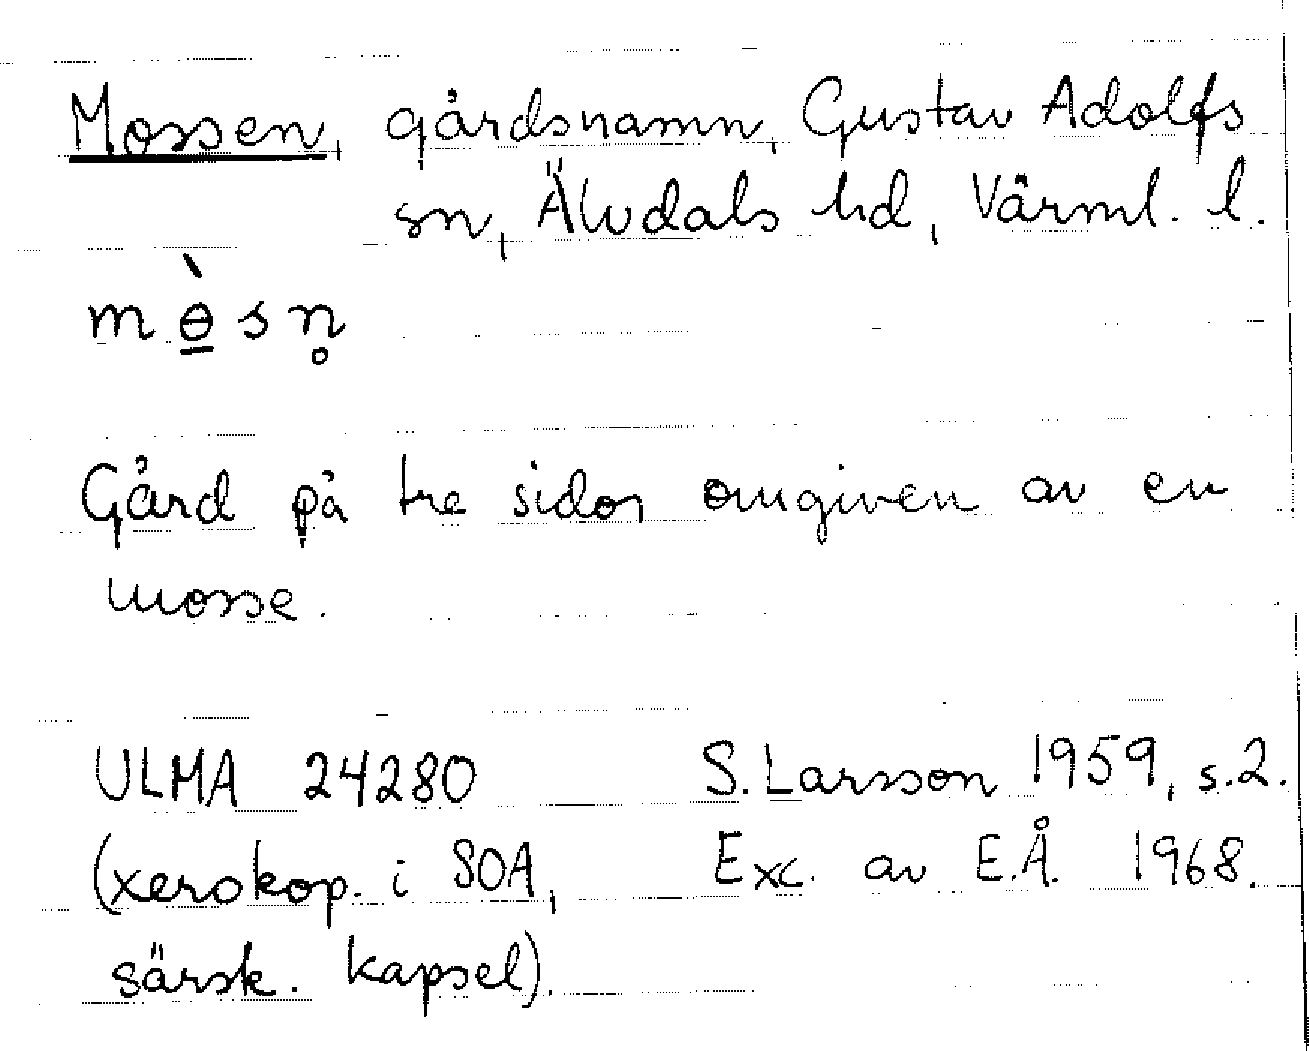 Mossen, gårdsnamn, Gustav Adolfs
sn, Älvdals hd, Värml. l.
mɵ̱̀sn̥
Gård på tre sidor omgiven av en
mosse.
ULMA 24280 S. Larsson 1959, s.2.
(xerokop. i SOA, Exc. av E.Å. 1968.
särsk. kapsel).